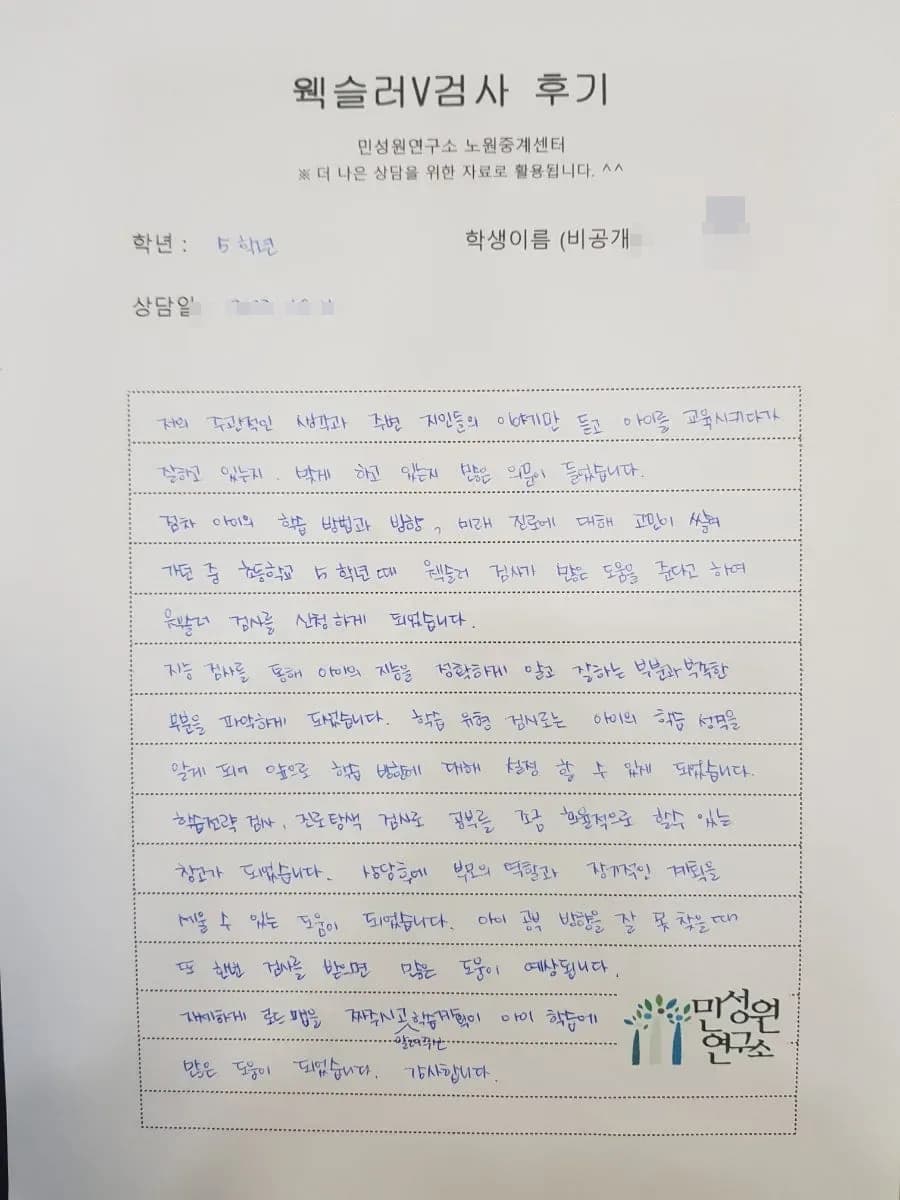 웩슬러V검사 후기
민성원연구소 노원중계센터
※ 더 나은 상담을 위한 자료로 활용됩니다. ^^
학년 : 5학년
학생이름 (비공개
상담일
저의 주관적인 생각과 주변 지인들의 이야기만 듣고 아이를 교육시키다가
잘하고 있는지. 맞게 하고 있는지 많은 의문이 들었습니다.
점차 아이의 학습 방법과 방향, 미래 진로에 대해 고민이 쌓여
가던 중 초등학교 5학년때 웩슬러 검사가 많은 도움을 준다고 하여
웩슬러 검사를 신청하게 되었습니다.
지능 검사를 통해 아이의 지능을 정확하게 알고 잘하는 부분과 부족한
부분을 파악하게 되었습니다. 학습 유형 검사로는 아이의 학습 성격을
알게 되어 앞으로 학습 방향에 대해 설정 할 수 있게 되었습니다.
학습전략 검사, 진로탐색 검사로 공부를 조금 효율적으로 할수 있는
참고가 되었습니다. 상담후에 부모의 역할과 장기적인 계획을
세울 수 있는 도움이 되었습니다. 아이 공부 방향을 잘 못 찾을때
또 한번 검사를 받으면 많은 도움이 예상됩니다.
자세하게 로드맵을 짜주시고 학습계획이 아이 학습에
알려주신
많은 도움이 되었습니다. 감사합니다.
민성원
연구소